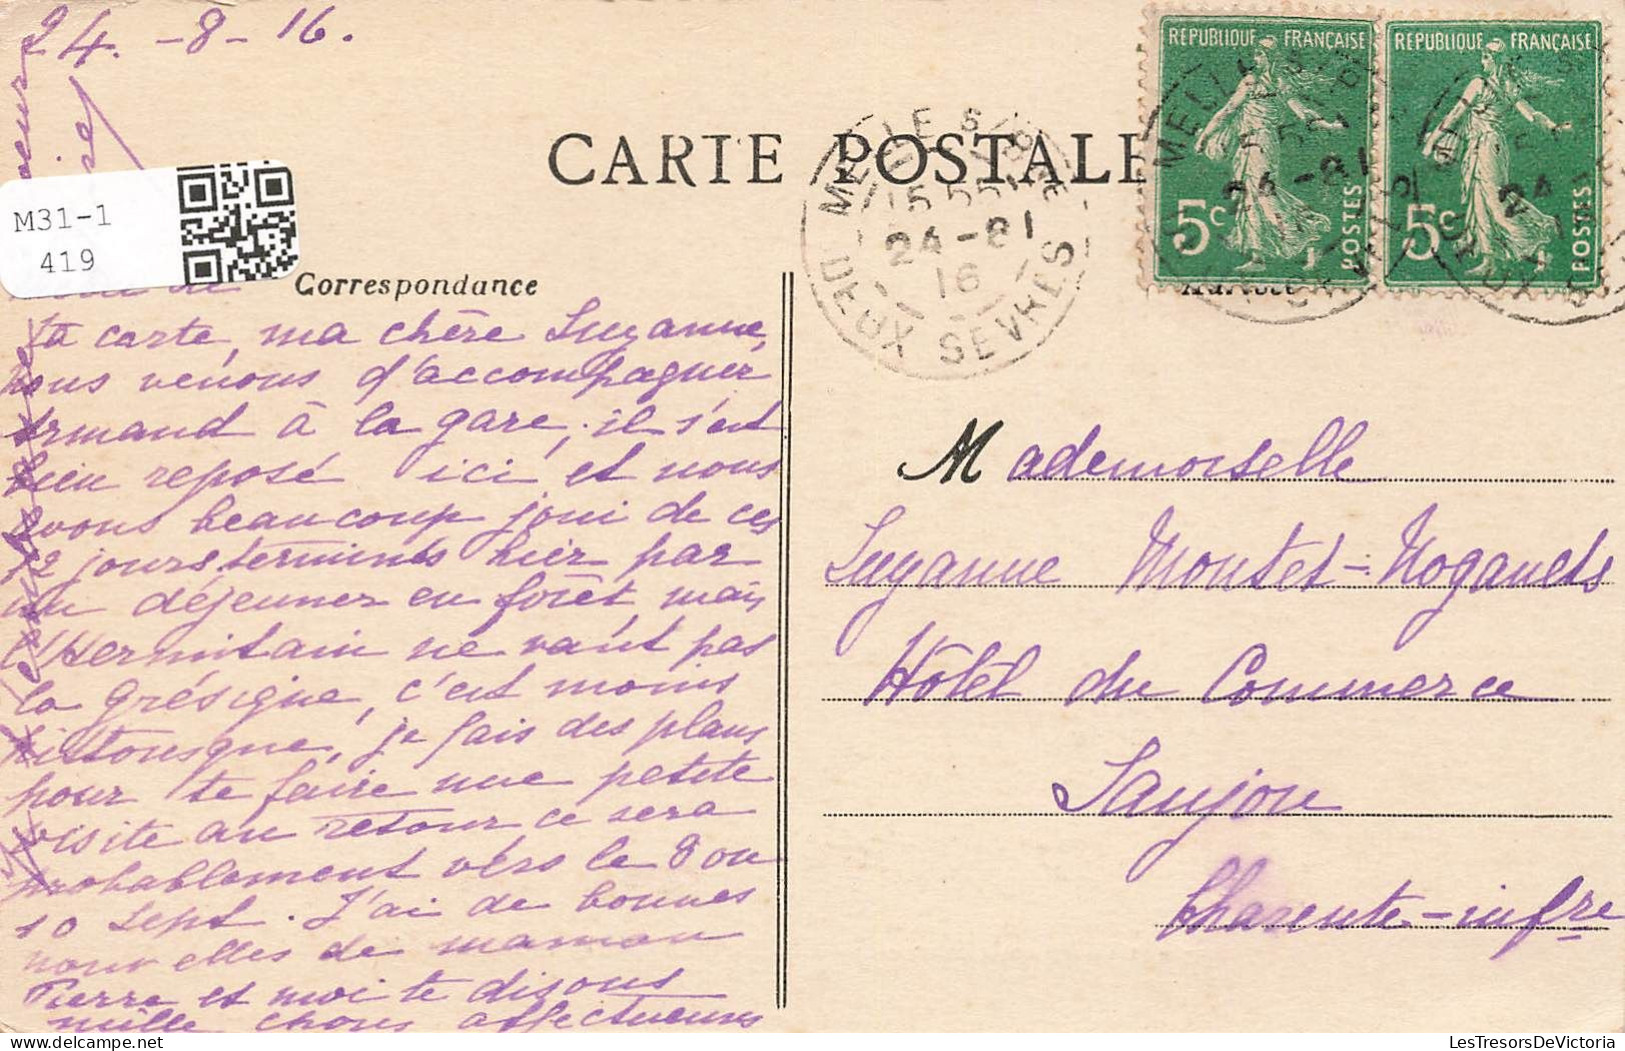 24-8-16.
REPUBLIQUE FRANÇAISE
5c POSTES
REPUBLIQUE FRANÇAISE
5c POSTES
CARTE POSTALE
MELLE S/B
15 55
24-8
16
DEUX SEVRES
M31-1
419
Correspondance
ta carte, ma chère Suzanne,
nous venons d'accompagner
Armand à la gare, il s'est
bien reposé ici et nous
avons beaucoup joui de ces
12 jours terminés hier par
un déjeuner en forêt mais
l'Hermitain ne vaut pas
la Grésigne, c'est moins
pittoresque, je fais des plans
pour te faire une petite
visite au retour ce sera
probablement vers le 8 ou
10 sept. J'ai de bonnes
nouvelles de maman
Pierre et moi te disons
mille choses affectueuses
Mademoiselle
Suzanne Montet-Nogancts
Hôtel du Commerce
Saujon
Charente-infre
LesTresorsDeVictoria